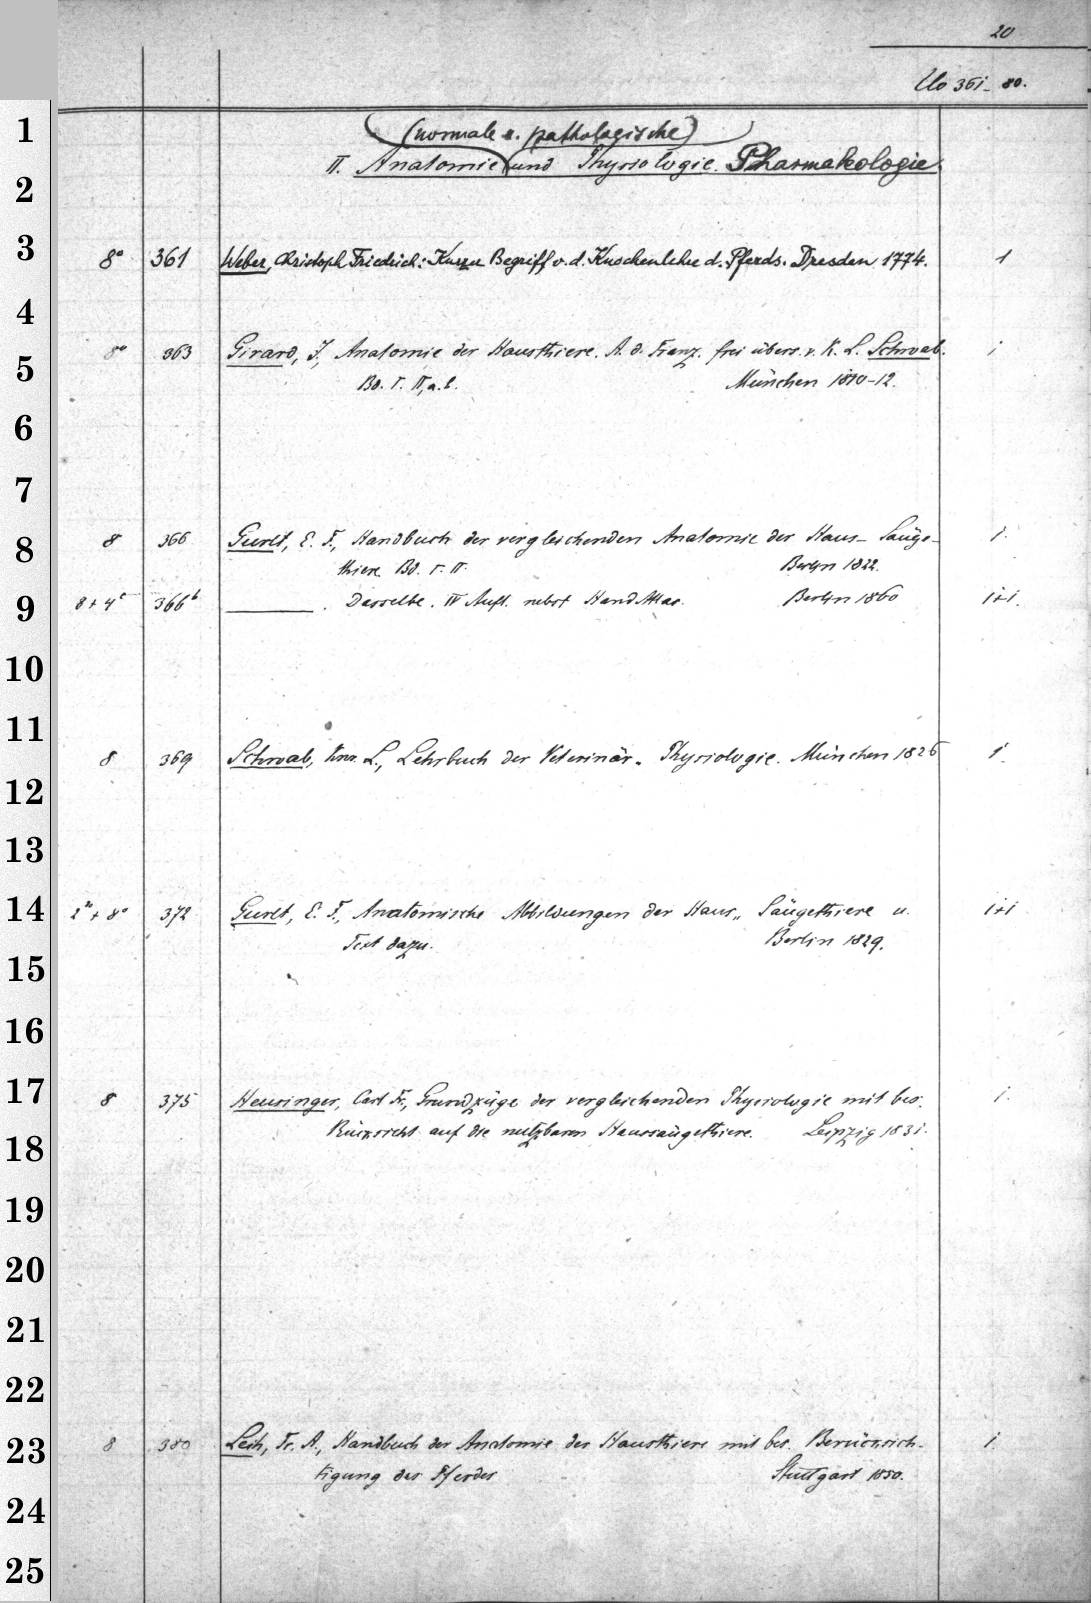 20
No 361-80.
1
(normale u. pathologische)
2
II. Anatomie und Physiologie. Pharmakologie.
3
8° 361 Weber, Christoph Friedrich: Kurzer Begriff v. d. Knochenlehre d. Pferds. Dresden 1774. 1
4
8° 363 Girard, J., Anatomie der Hausthiere. A. d. Franz. frei übers. v. K. L. Schwab. 1
5
Bd. I. II, a. b. München 1810-12.
6
7
8 366 Gurlt, E. F., Handbuch der vergleichenden Anatomie der Haus- Säuge- 1.
8
thiere Bd. I. II. Berlin 1822.
9
8 + 4° 366b ———. Dasselbe. IV Aufl. nebst Hand Atlas. Berlin 1860 1+1.
10
11
8 369 Schwab, L., Lehrbuch der Veterinär- Physiologie. München 1826 1.
12
13
14
2° + 8° 372 Gurlt, E. F., Anatomische Abbildungen der Haus- Säugethiere u. 1+1
Text dazu. Berlin 1829.
15
16
17
8 375 Heusinger, Carl Fr., Grundzüge der vergleichenden Physiologie mit bes. 1.
18
Rücksicht auf die nutzbaren Haussäugethiere. Leipzig 1831.
19
20
21
22
23
8 380 Leih, Fr. A., Handbuch der Anatomie der Hausthiere mit bes. Berücksich- 1.
tigung des Pferdes Stuttgart 1850.
24
25